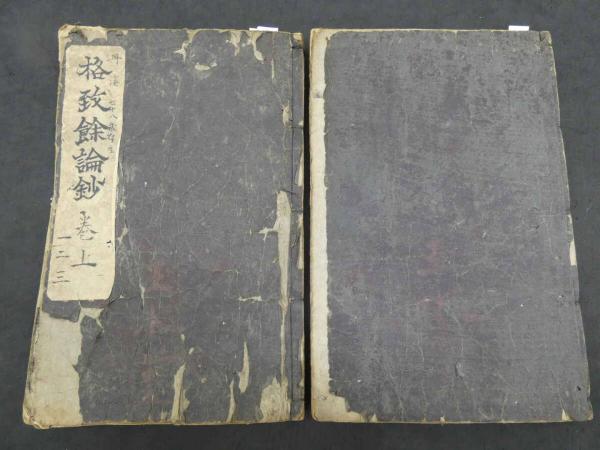 格致餘論鈔
巻上
一二三